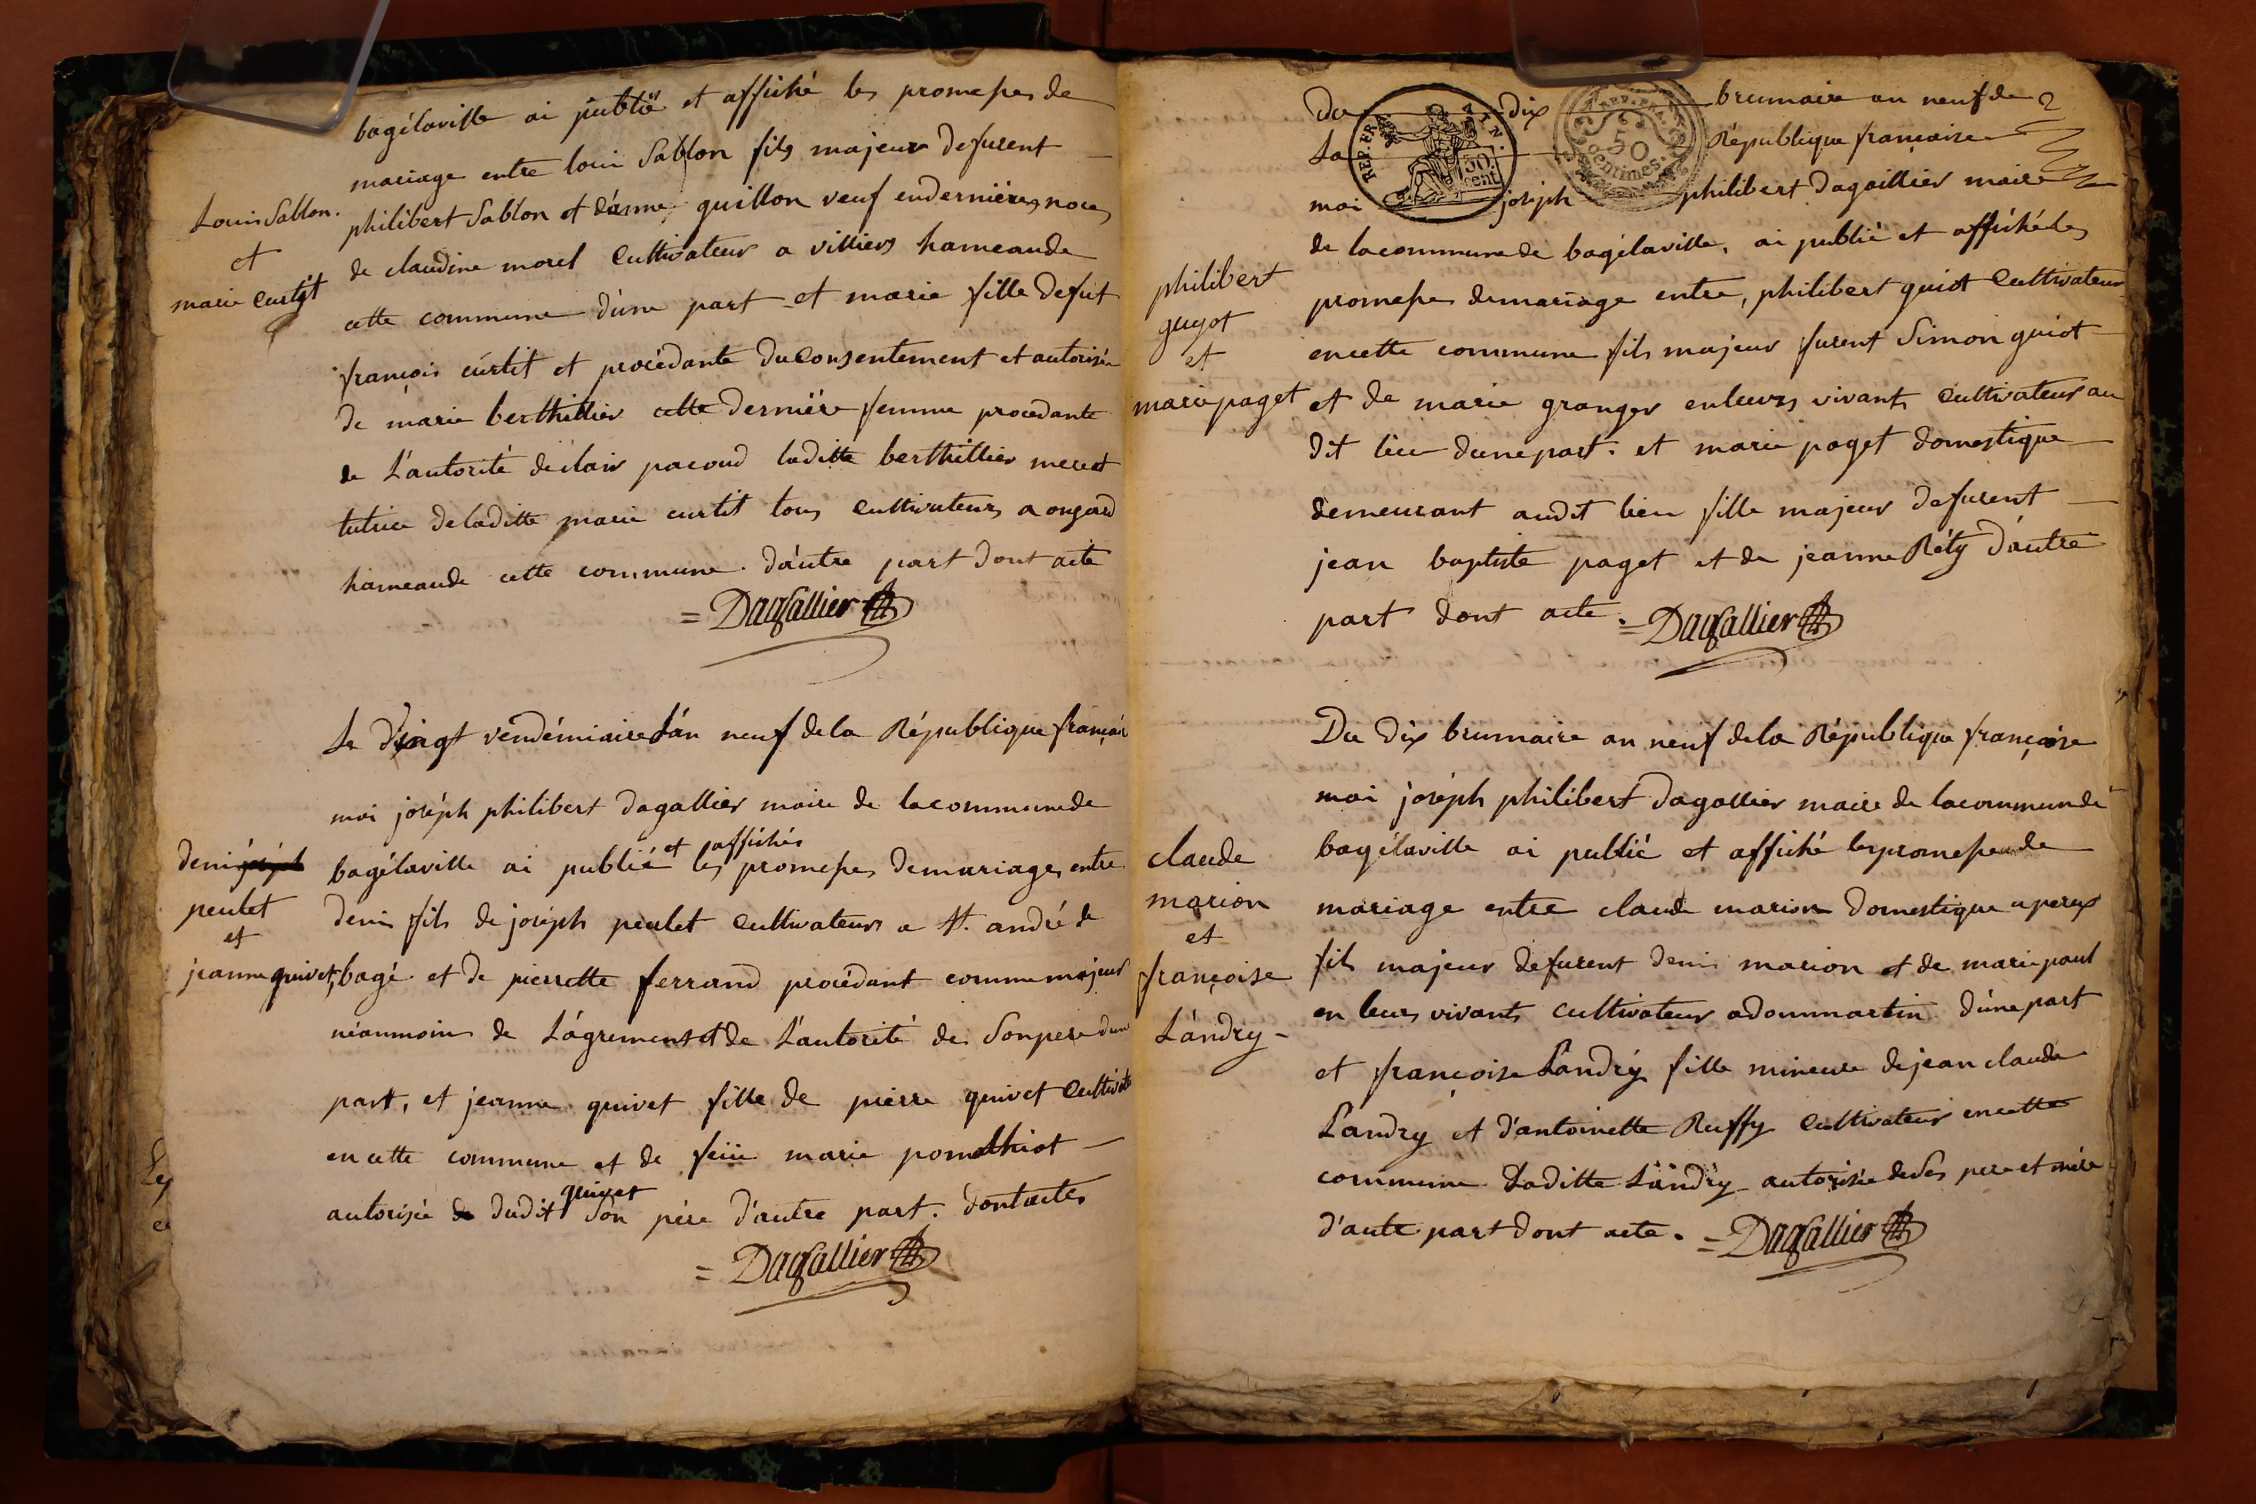 bagélaville ai publié et affiché les promesses de
mariage entre louis Sablon fils majeur defurent
Louis Sablon.
et
marie curtit
philibert Sablon et d'anne guillon veuf endernières noces
de claudine morel Cultivateur a villiers hameaude
cette commune d'une part et marie fille defut
françois curtit et procédante du consentement et autorisée
de marie berthillier cette dernière femme procedante
de L'autorité declair pacoud laditte berthillier mere et
tutrice deladitte marie curtit tous cultivateurs a ongard
hameaude cette commune. d'autre part dont acte
= Dagallier
Le vingt vendémiaire L'án neuf dela République français
moi joséph philibert dagallier maire de lacommunede
bagélaville ai publié et affichés les promesses demariages entre
deni joséph
peulet
et
jeanne quivet,
denis fils de joséph peulet Cultivateurs a St. andré de
bagé et de pierrette ferrand procédant comme majeur
néanmoins de L'ágrement et de L'autorité de Sonpere dune
part, et jeanne quivet fille de pierre quivet Cultivate
en cette commune et de feüe marie pomathiot
autorisée de dudit quivet Son père d'autre part. dontactes
= Dagallier
Du dix brumaire an neuf de
La République française
REP. FRA. 50 cent. TIN.
50 centimes.
moi joséph philibert Dagallier maire
de lacommune de bagélaville, ai publié et affiché les
philibert
guyot
et
marie paget
promesses demariage entre, philibert guiot Cultivateur
encette commune fils majeur furent Simon guiot
et de marie granger enleurs vivants Cultivateur au
dit lieu dunepart. et marie paget domestique
demeurant audit lieu fille majeur defurent
jean baptiste paget et de jeanne Réty d'autre
part dont acte. = Dagallier
Du dix brumaire an neuf dela République française
moi joséph philibert dagallier maire de lacommunde
bagélaville ai publié et affiché lespromessesde
claude
marion
et
françoise
Lándry -
mariage entre claude marion domestique a perex
fils majeur defurent denis marion et de marie paul
en leurs vivants cultivateur adommartin d'une part
et françoise Landry fille mineure de jean claude
Landry et d'antoinette Ruffy Cultivateur encette
commune Laditte Landry autorisée deses pere et mére
d'aute part dont acte. = Dagallier